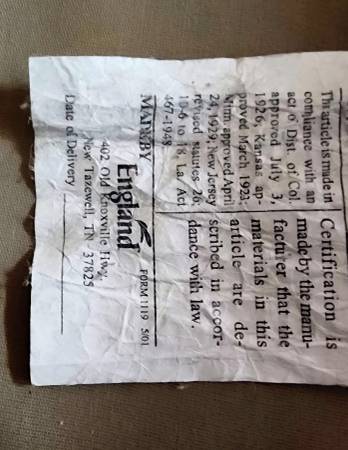 This article is made in
compliance with an
act of Dist. of Col.
approved July 3,
1926, Kansas ap-
proved March 1923;
Minn. approved April
24, 1929; New Jersey
revised statutes 26:
10-6 to 18, La. Act
467-1948.
Certification is
made by the manu-
facturer that the
materials in this
article are de-
scribed in accor-
dance with law.
MADE BY
FORM 1119 5/01
England
402 Old Knoxville Hwy.
New Tazewell, TN 37825
Date of Delivery